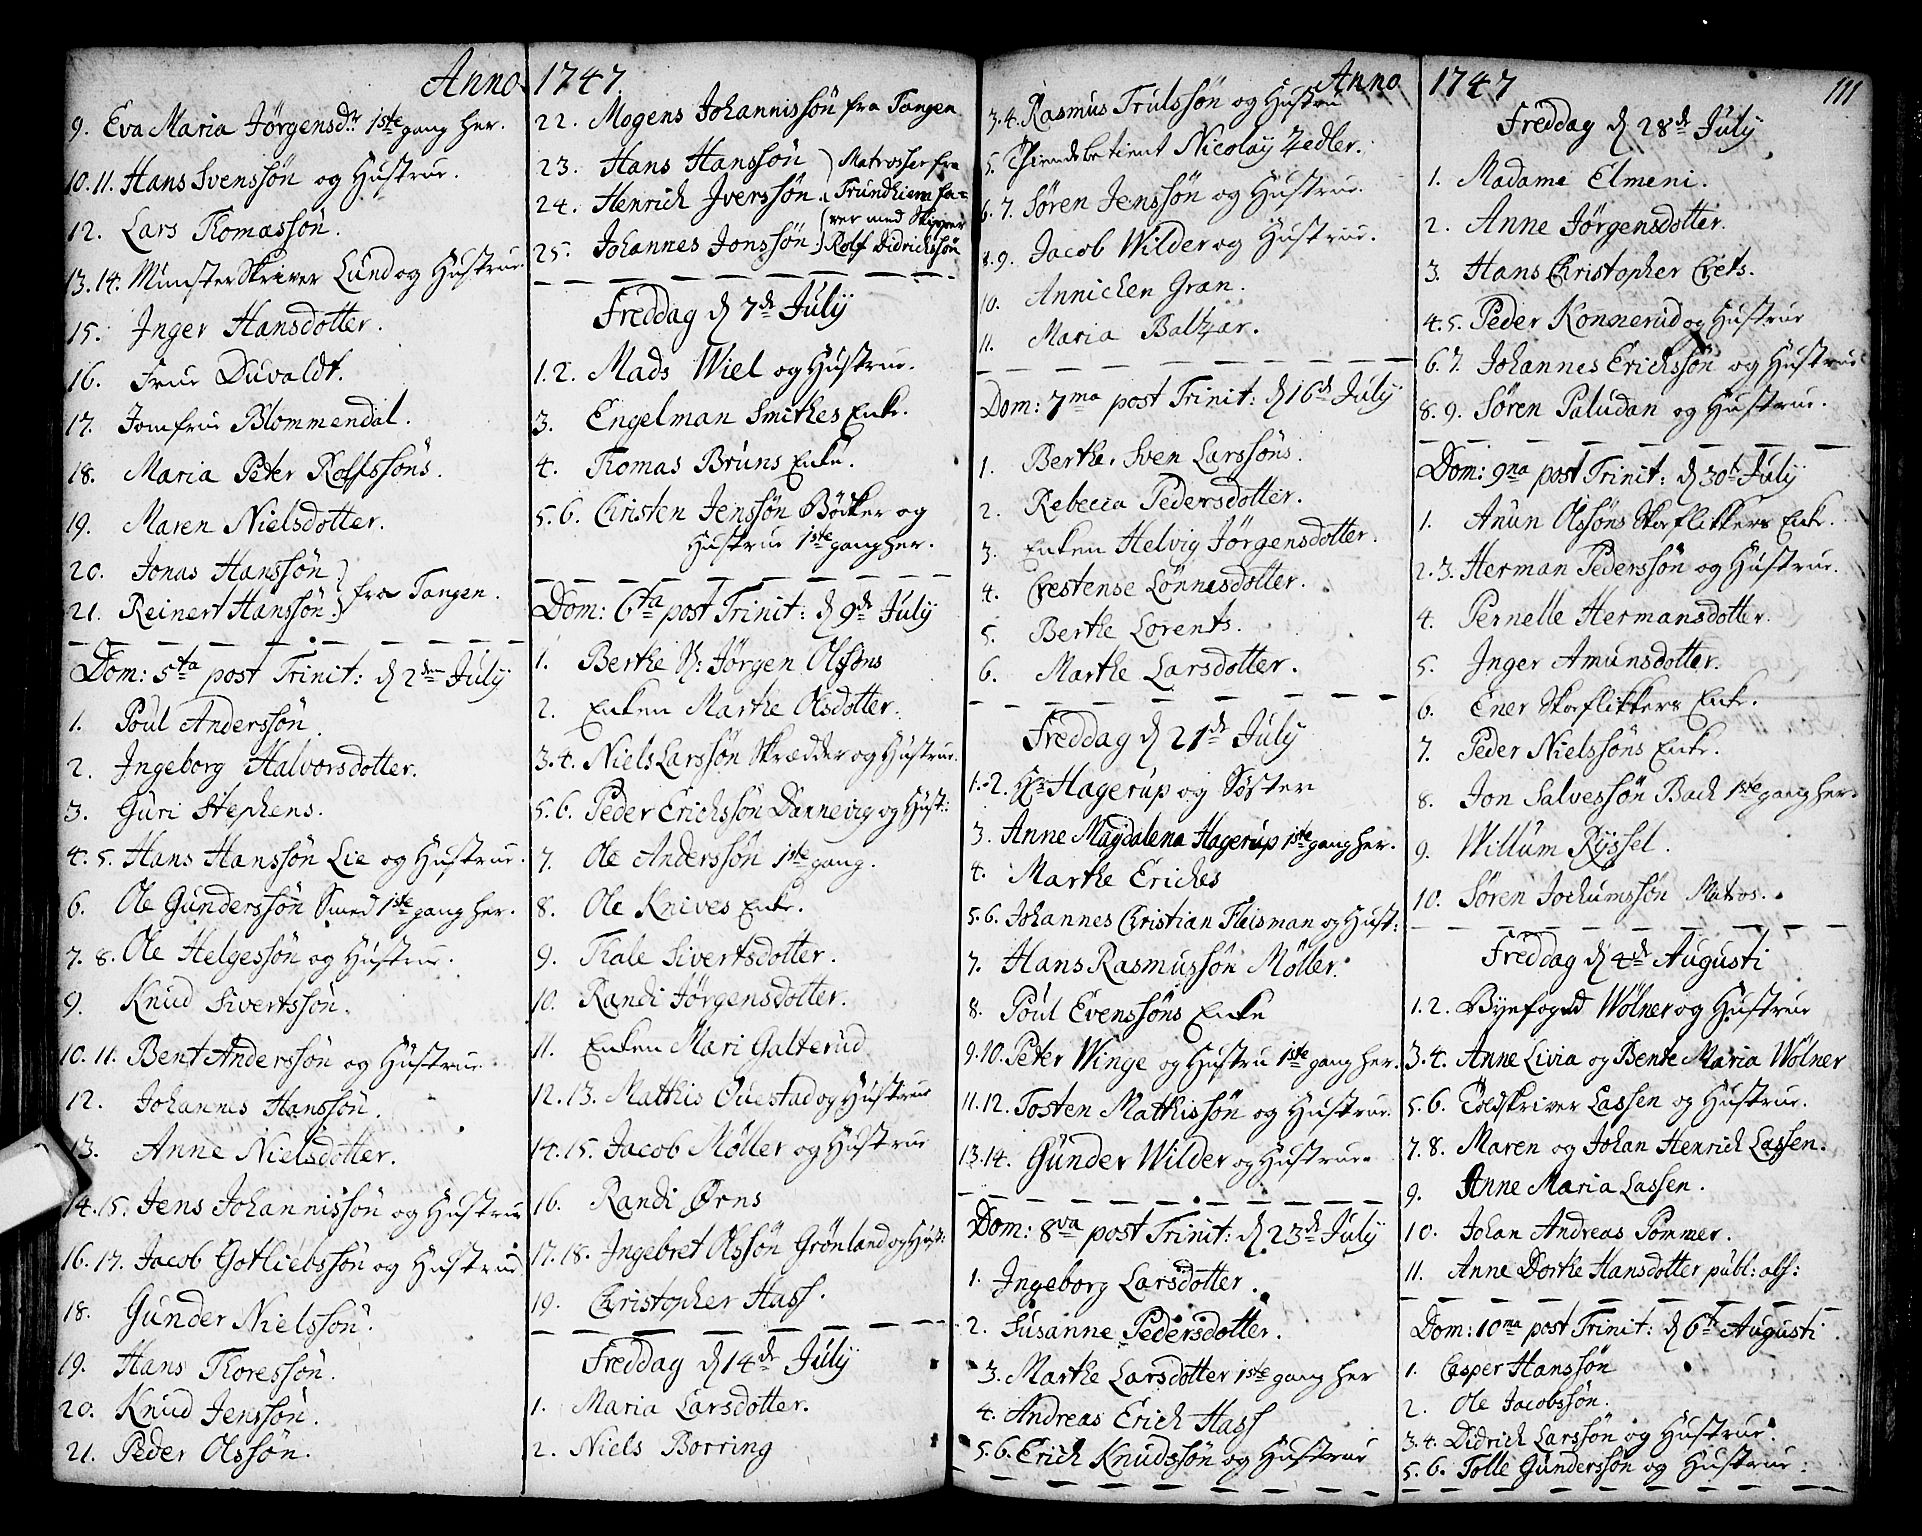 Anno 1747
9. Eva Maria Jörgensdr 1ste gang her.
10. 11. Hans Svenssön og Hustrue.
12. Lars Thomassön.
13. 14. Münster Skriver Lund og Hustrue.
15. Inger Hansdotter.
16. Frue Duvaldt.
17. Jomfrue Blommendal.
18. Maria Peter Rolfssöns.
19. Maren Nielsdotter.
20. Jonas Hanssön
21. Reinert Hanssön. } fra Tangen.
Dom: 5ta post Trinit: d 2den July
1. Poul Anderssön.
2. Ingeborg Halvorsdotter.
3. Guri Stephens.
4. 5. Hans Hanssön Lie og Hustrue.
6. Ole Gunderssön Smed 1ste gang her.
7. 8. Ole Helgessön og Hustrue.
9. Knud Sivertssön.
10. 11. Bent Anderssön og Hustrue
12. Johannes Hanssön.
13. Anne Nielsdotter.
14. 15. Jens Johannissön og Hustrue
16. 17. Jacob Gotliebssön og Hustrue
18. Gunder Nielssön.
19. Hans Thoressön.
20. Knud Jenssön.
21. Peder Olssön.
22. Mogens Johannissön fra Tangen
23. Hans Hanssön } Matrosser fra
24. Henrich Iverssön } Trundhiem fa-
ver med Skipper
25. Johannes Jonssön } Rolf Didrichssön
Freddag d 7de July
1. 2. Mads Wiel og Hustrue.
3. Engelman Smithes Enke.
4. Thomas Bruns Enke.
5. 6. Christen Jenssön Böcker og
Hustrue 1ste gang her.
Dom: 6ta post Trinit: d 9de July
1. Berthe S: Jörgen Olssöns
2. Enken Marthe Olsdotter.
3. 4. Niels Larssön Skrædder og Hustrue.
5. 6. Peder Erichssön Dannevig og Hust:
7. Ole Anderssön 1ste gang.
8. Ole Knives Enke.
9. Thale Sivertsdotter.
10. Randi Jörgensdotter.
11. Enken Mari Galterud
12. 13. Mathis Ouestad og Hustrue
14. 15. Jacob Møller og Hustrue
16. Randi Ørns
17. 18. Ingebret Olssön Grönland og Hust:
19. Christopher Hass.
Freddag d 14de July
1. Maria Larsdotter.
2. Niels Borring
Anno 1747 111
3. 4. Rasmus Trulssön og Hustru
5. Nicolay Zedler.
6. 7. Sören Jenssön og Hustrue.
8. 9. Jacob Wilder og Hustrue.
10. Annichen Gran.
11. Maria Baltzar.
Dom: 7ma post Trinit: d 16de July
1. Berthe, Sven Larssöns.
2. Rebecca Pedersdotter.
3. Enken Helvig Jörgensdotter.
4. Chestense Lönnesdotter.
5. Berthe Lorents.
6. Marthe Larsdotter.
Freddag d 21de July
1. 2. Hr Hagerup og Söster
3. Anne Magdalena Hagerup 1ste gang her.
4. Marthe Eriches
5. 6. Johannes Christian Fleisman og Hust:
7. Hans Rasmussön Möller.
8. Poul Evenssöns Enke
9. 10. Peter Winge og Hustru 1ste gang her.
11. 12. Tosten Mathissön og Hustrue.
13. 14. Gunder Wilder og Hustrue
Dom: 8va post Trinit: d 23de July
1. Ingeborg Larsdotter.
2. Susanne Pedersdotter.
3. Marthe Larsdotter 1ste gang her
4. Andreas Erich Hass
5. 6. Erich Knudssön og Hustrue
Freddag d 28de July
1. Madame Elmeni.
2. Anne Jörgensdotter.
3. Hans Christopher Crets.
4. 5. Peder Konnerud og Hustrue
6. 7. Johannes Erichssön og Hustrue
8. 9. Sören Paludan og Hustrue.
Dom: 9na post Trinit: d 30te July
1. Anun Olssöns Skoeflikkers Enke.
2. 3. Herman Pederssön og Hustrue.
4. Pernelle Hermansdotter.
5. Inger Amunsdotter.
6. Ener Skoeflikkers Enke.
7. Peder Nielssöns Enke.
8. Jon Salvessön Bach 1ste gang her.
9. Willum Ryssel.
10. Sören Jochumssön Matros.
Freddag d 4de Augusti
1. 2. Byefogd Wölner og Hustrue
3. 4. Anne Livia og Bente Maria Wölner
5. 6. Toldskriver Lassen og Hustrue.
7. 8. Maren og Johan Henrich Lassen.
9. Anne Maria Lassen.
10. Johan Andreas Pommer.
11. Anne Dorthe Hansdotter publ: abs:
Dom: 10ma post Trinit: d 6te Augusti
1. Casper Hanssön
2. Ole Jacobssön.
3. 4. Didrich Larssön og Hustrue.
5. 6. Tolle Gunderssön og Hustrue.